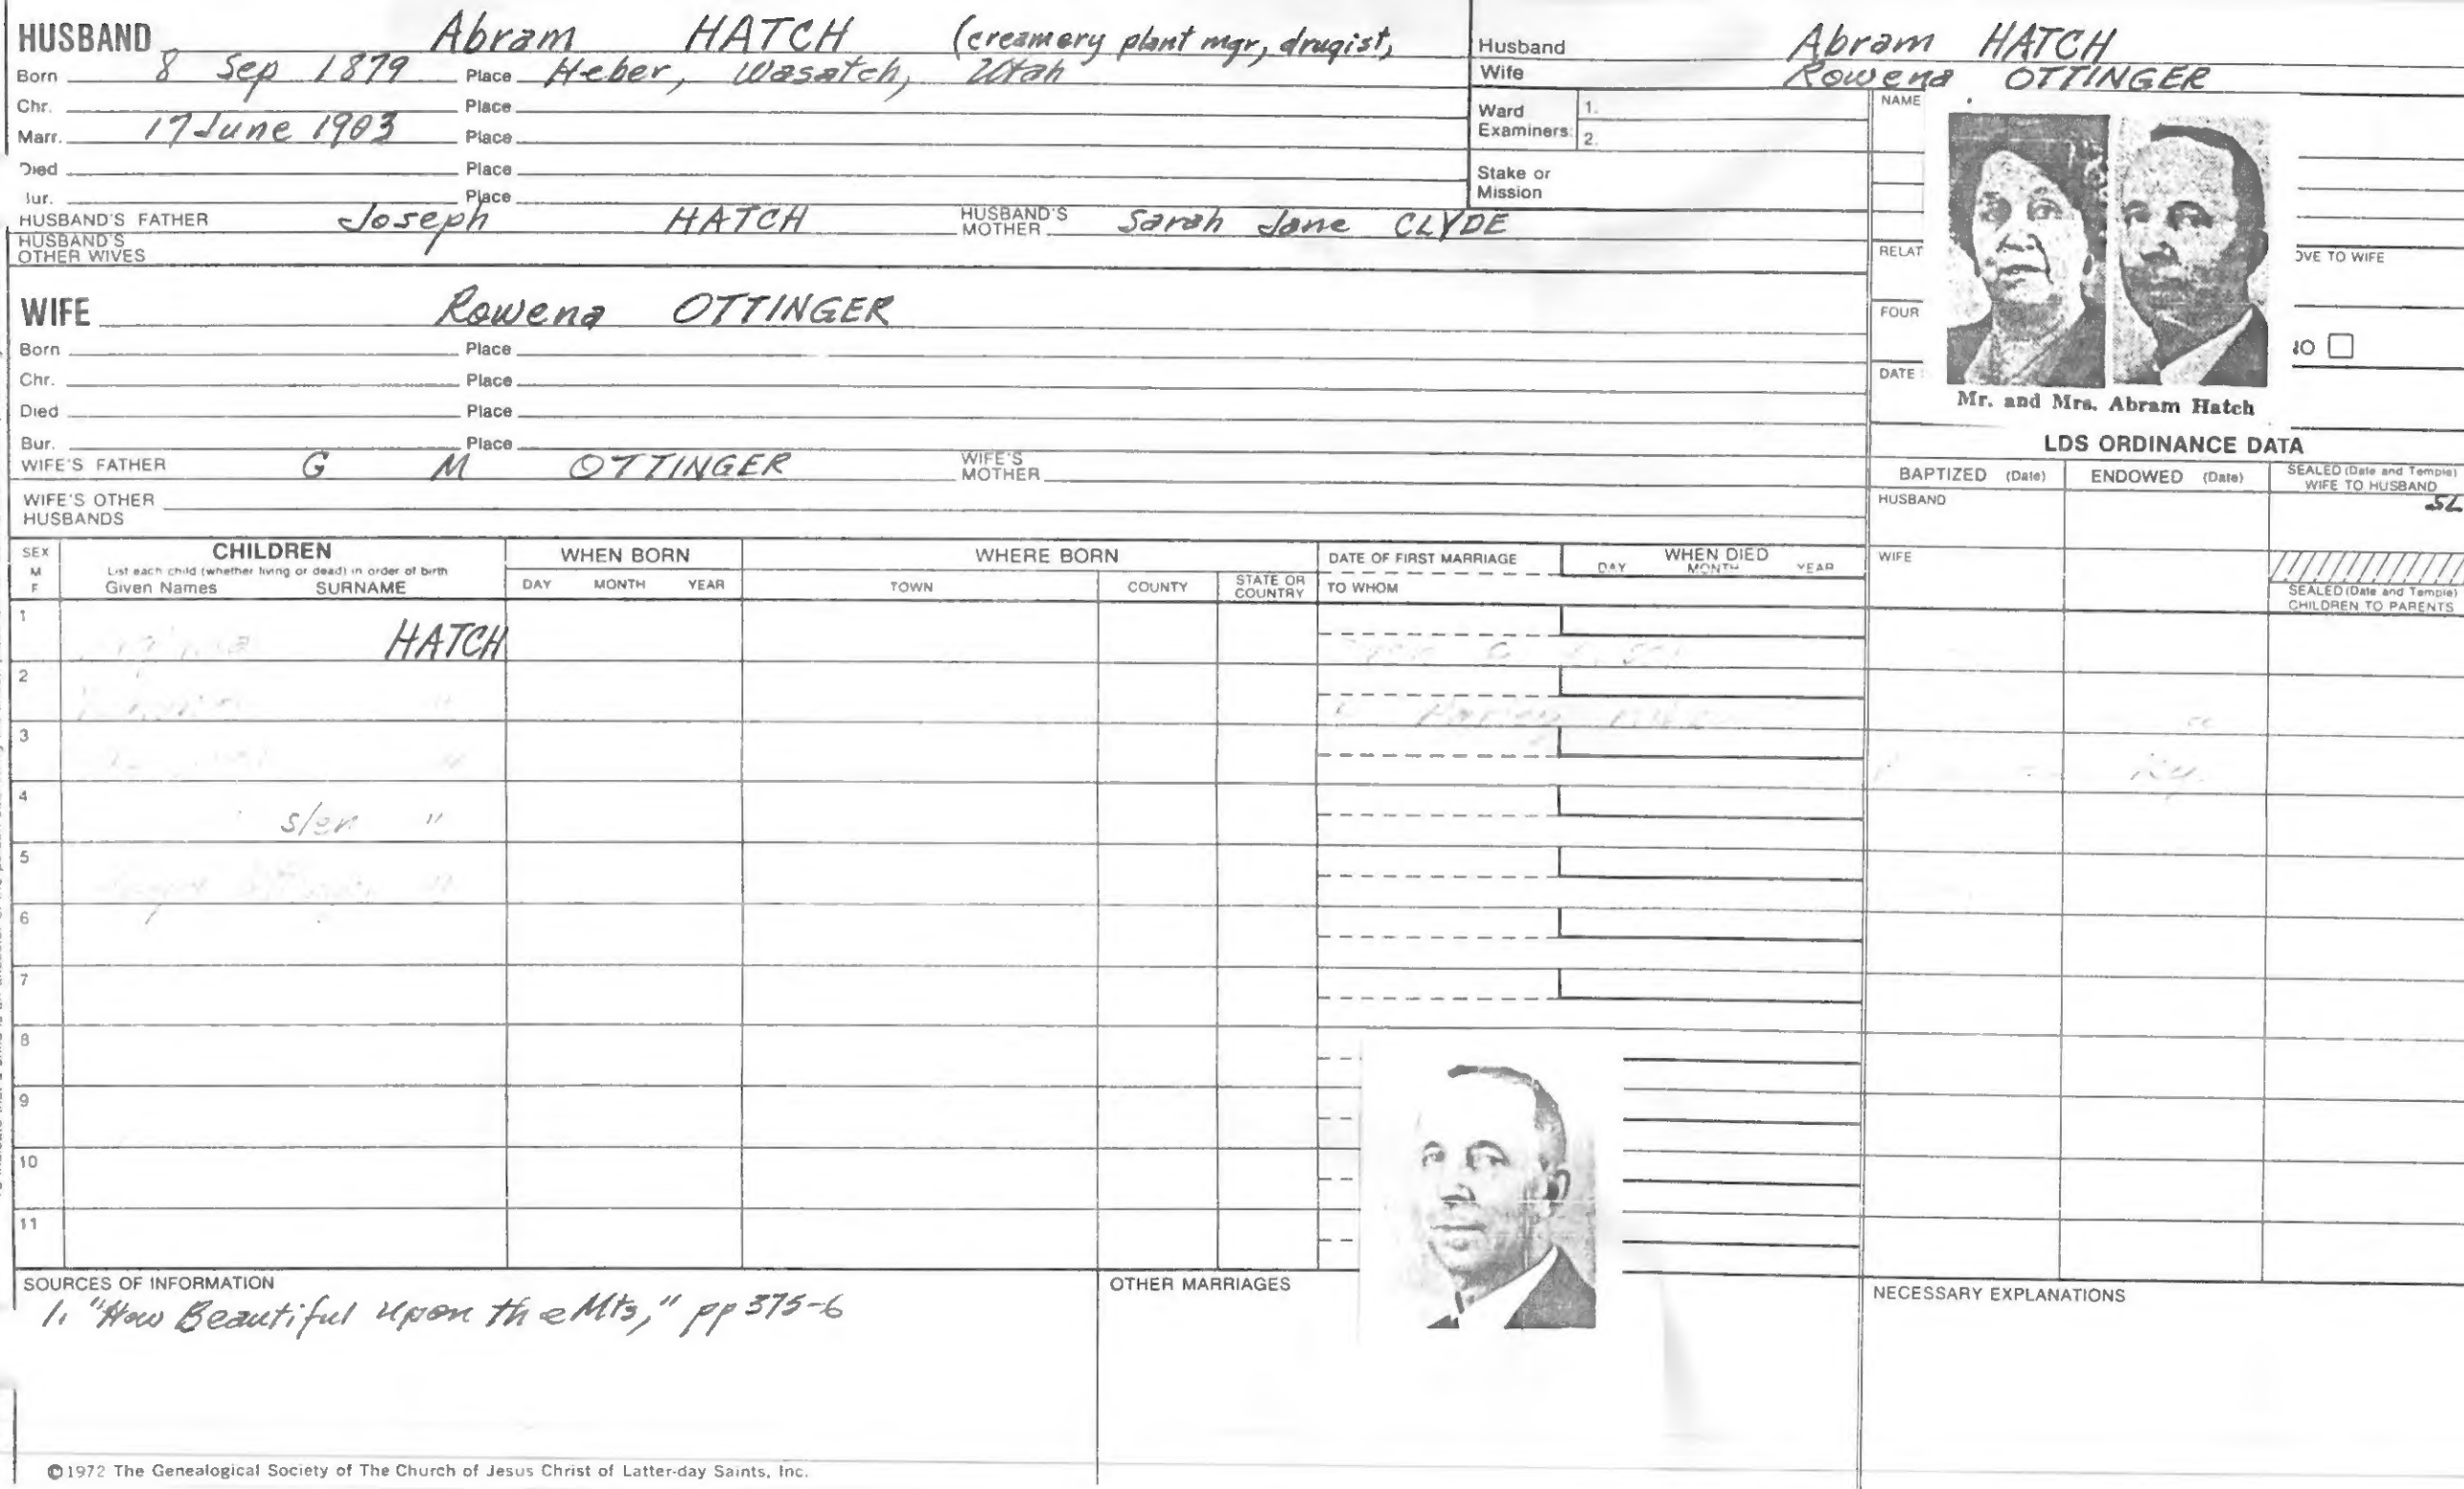 HUSBAND Abram HATCH (creamery plant mgr, drugist,
Born 8 Sep 1879 Place Heber, Wasatch, Utah
Chr. Place
Marr. 17 June 1903 Place
Died Place
Bur. Place
HUSBAND'S FATHER Joseph HATCH HUSBAND'S MOTHER Sarah Jane CLYDE
HUSBAND'S OTHER WIVES
WIFE Rowena OTTINGER
Born Place
Chr. Place
Died Place
Bur. Place
WIFE'S FATHER G M OTTINGER WIFE'S MOTHER
WIFE'S OTHER HUSBANDS
Husband Abram HATCH
Wife Rowena OTTINGER
Ward Examiners: 1.
2.
Stake or Mission
NAME
RELAT
OVE TO WIFE
FOUR
DATE
Mr. and Mrs. Abram Hatch
LDS ORDINANCE DATA
BAPTIZED (Date) ENDOWED (Date) SEALED (Date and Temple) WIFE TO HUSBAND
HUSBAND SL
WIFE
SEALED (Date and Temple) CHILDREN TO PARENTS
SEX M F
CHILDREN
List each child (whether living or dead) in order of birth
Given Names SURNAME
WHEN BORN
DAY MONTH YEAR
WHERE BORN
TOWN COUNTY STATE OR COUNTRY
DATE OF FIRST MARRIAGE
TO WHOM
WHEN DIED
DAY MONTH YEAR
1 HATCH
2 "
3 "
4 "
5 "
6
7
8
9
10
11
SOURCES OF INFORMATION
1. "How Beautiful Upon the Mts," pp 375-6
OTHER MARRIAGES
NECESSARY EXPLANATIONS
©1972 The Genealogical Society of The Church of Jesus Christ of Latter-day Saints, Inc.